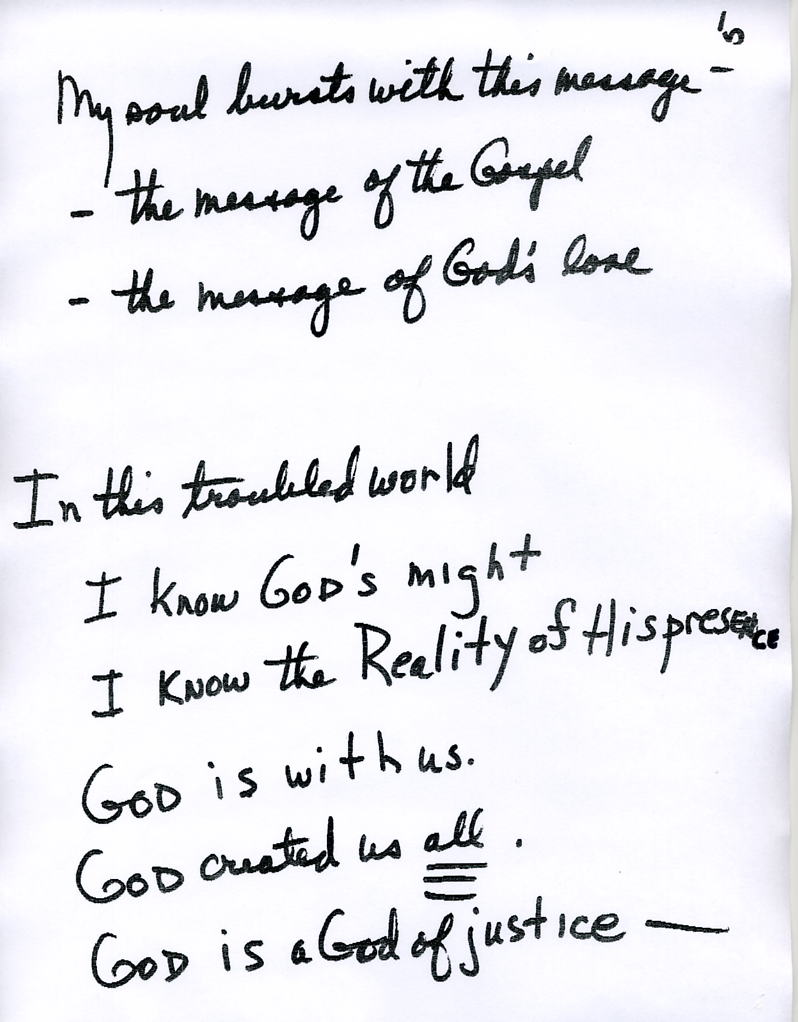 My soul bursts with this message -
- the message of the Gospel
- the message of God's love
In this troubled world
I know GOD's might
I KNOW the Reality of His presENCE
GOD is with us.
GOD created us all.
GOD is a God of justice —